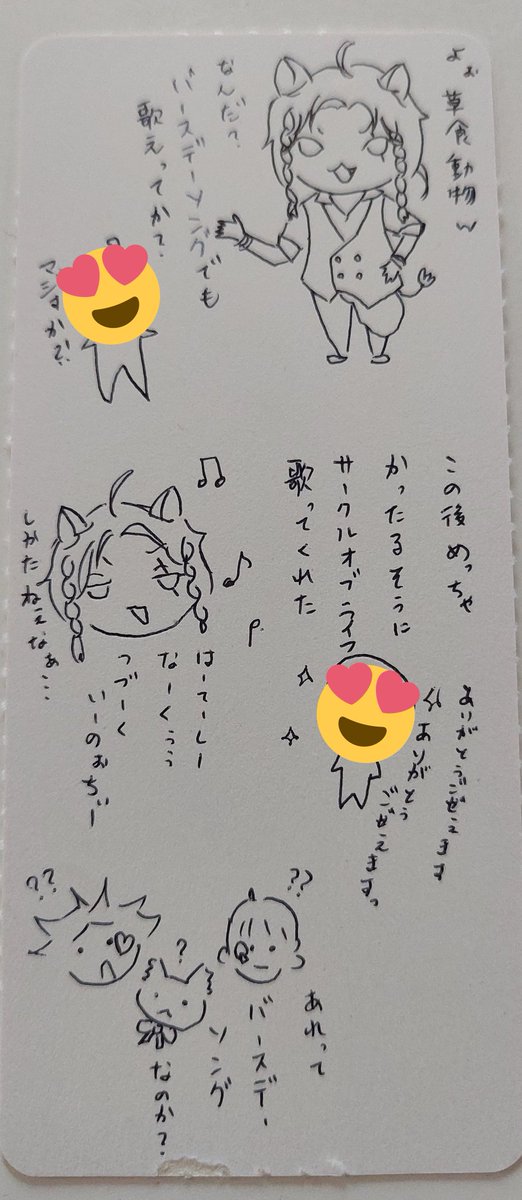 よぉ 草食動物w
なんだ?
バースデーソングでも
歌えってか?
マジか?!
この後めっちゃ
かったるそうに
サークルオブライフ
歌ってくれた
ありがとうごぜえます
ありがとう
ごぜえますっ
はーてーしー
なーくぅぅ
つづーく
いーのぉちぃー
しかたねぇなぁ…
??
?
??
あれって
バースデー
ソング
なのか?